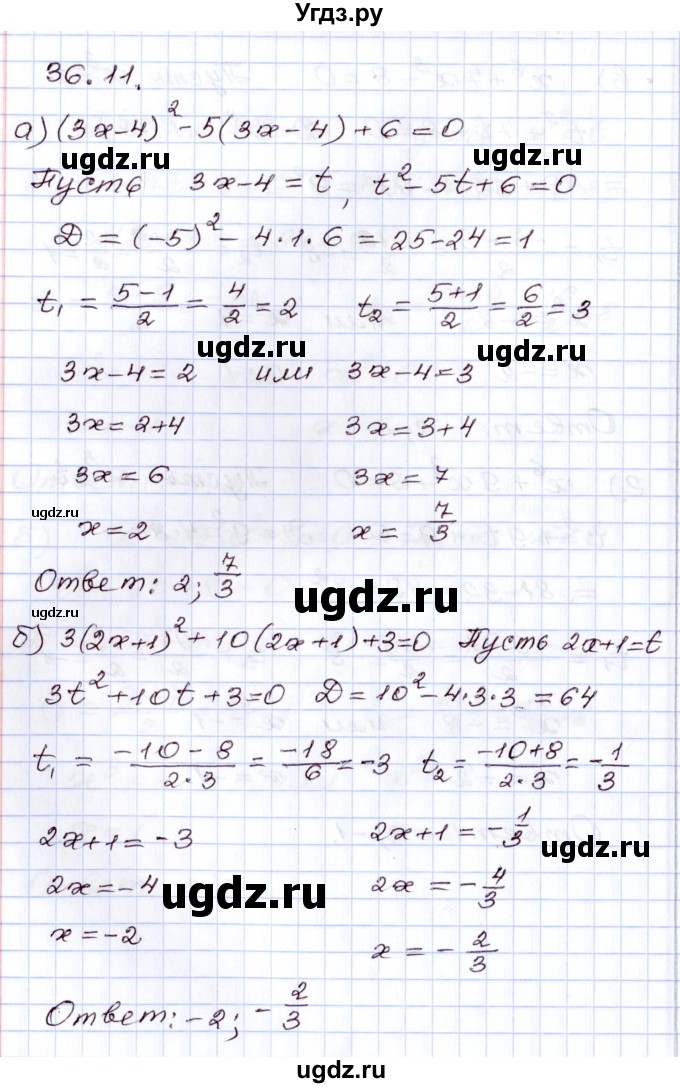 Угдз.ру
36.11.
а) (3x-4)² - 5(3x-4) + 6 = 0
ugdz.ru ugdz.ru
Пусть 3x-4 = t, t² - 5t + 6 = 0
D = (-5)² - 4·1·6 = 25-24 = 1
t₁ = (5-1)/2 = 4/2 = 2 t₂ = (5+1)/2 = 6/2 = 3
ugdz.ru ugdz.ru
3x-4 = 2 или 3x-4 = 3
3x = 2+4 3x = 3+4
3x = 6 3x = 7
ugdz.ru
x = 2 x = 7/3
Ответ: 2; 7/3
ugdz.ru
ugdz.ru
б) 3(2x+1)² + 10(2x+1) + 3 = 0 Пусть 2x+1 = t
3t² + 10t + 3 = 0 D = 10² - 4·3·3 = 64
t₁ = (-10-8)/(2·3) = -18/6 = -3 t₂ = (-10+8)/(2·3) = -1/3
2x+1 = -3 2x+1 = -1/3
ugdz.ru
2x = -4 2x = -4/3
ugdz.ru
x = -2 x = -2/3
Ответ: -2; -2/3
ugdz.ru